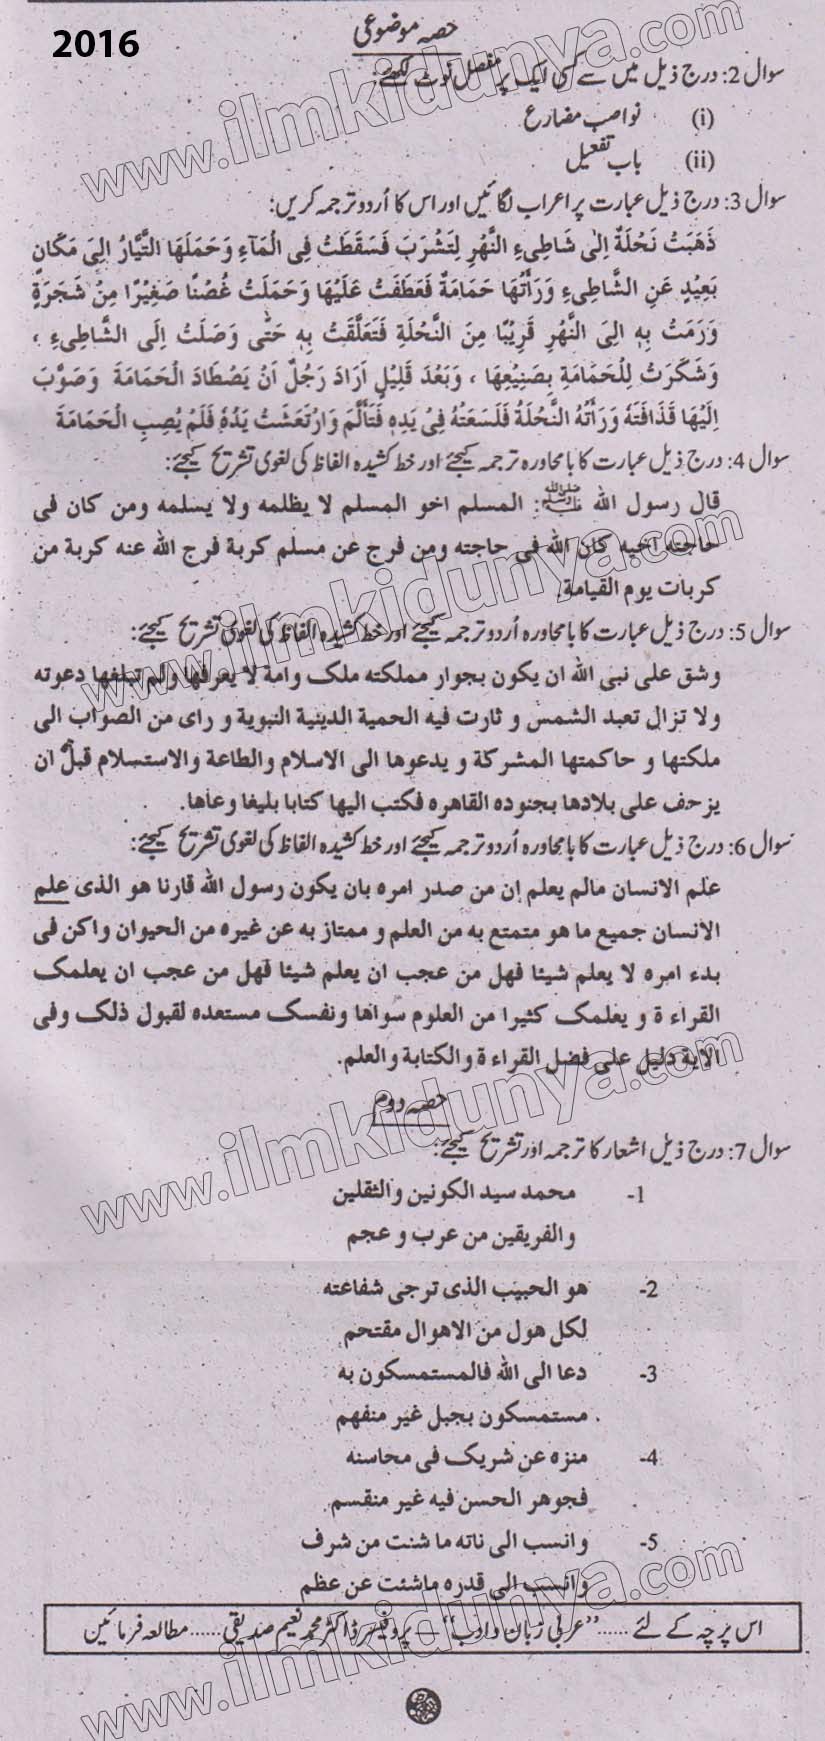 2016
حصہ موضوعی
سوال 2: درج ذیل میں سے کسی ایک پر مفصل نوٹ لکھئے:
(i) نواصب مضارع
(ii) باب تفعیل
سوال 3: درج ذیل عبارت پر اعراب لگائیں اور اس کا اُردو ترجمہ کریں:
ذَهَبَتْ نَحْلَةٌ اِلٰى شَاطِىءِ النَّهْرِ لِتَشْرَبَ فَسَقَطَتْ فِى الْمَآءِ وَحَمَلَهَا التَّيَّارُ اِلىَ مَكَانٍ
بَعِيْدٍ عَنِ الشَّاطِىءِ وَرَأَتْهَا حَمَامَةٌ فَعَطَفَتْ عَلَيْهَا وَحَمَلَتْ غُصْنًا صَغِيْرًا مِنْ شَجَرَةٍ
وَرَمَتْ بِهٖ اِلىَ النَّهْرِ قَرِيْبًا مِنَ النَّحْلَةِ فَتَعَلَّقَتْ بِهٖ حَتّٰى وَصَلَتْ اِلَى الشَّاطِىءِ ،
وَشَكَرَتْ لِلْحَمَامَةِ بِصَنِيْعِهَا ، وَبَعْدَ قَلِيْلٍ اَرَادَ رَجُلٌ اَنْ يَصْطَادَ الْحَمَامَةَ وَصَوَّبَ
اِلَيْهَا قَذَافَتَهُ وَرَأَتْهُ النَّحْلَةُ فَلَسَعَتْهُ فِىْ يَدِهٖ فَتَأَلَّمَ وَارْتَعَشَتْ يَدُهُ فَلَمْ يُصِبِ الْحَمَامَةَ
سوال 4: درج ذیل عبارت کا بامحاورہ ترجمہ کیجئے اور خط کشیدہ الفاظ کی لغوی تشریح کیجئے:
قال رسول الله ﷺ: المسلم اخو المسلم لا يظلمه ولا يسلمه ومن كان فى
حاجته اخيه كان الله فى حاجته ومن فرج عن مسلم كربة فرج الله عنه كربة من
كربات يوم القيامة.
سوال 5: درج ذیل عبارت کا بامحاورہ اُردو ترجمہ کیجئے اور خط کشیدہ الفاظ کی لغوی تشریح کیجئے:
وشق على نبى الله ان يكون بجوار مملكته ملك وامة لا يعرفها ولم تبلغها دعوته
ولا تزال تعبد الشمس و ثارت فيه الحمية الدينية النبوية و راى من الصواب الى
ملكتها و حاكمتها المشركة و يدعوها الى الاسلام والطاعة والاستسلام قبل ان
يزحف على بلادها بجنوده القاهره فكتب اليها كتابا بليغا وعاها.
سوال 6: درج ذیل عبارت کا بامحاورہ اُردو ترجمہ کیجئے اور خط کشیدہ الفاظ کی لغوی تشریح کیجئے:
علم الانسان مالم يعلم إن من صدر امره بان يكون رسول الله قارنا هو الذى علم
الانسان جميع ما هو متمتع به من العلم و ممتاز به عن غيره من الحيوان واكن فى
بدء امره لا يعلم شيئا فهل من عجب ان يعلم شيئا فهل من عجب ان يعلمك
القراءة و يعلمك كثيرا من العلوم سواها ونفسك مستعده لقبول ذلك وفى
الاية دليل على فضل القراءة والكتابة والعلم.
حصہ دوم
سوال 7: درج ذیل اشعار کا ترجمہ اور تشریح کیجئے:
1- محمد سيد الكونين والثقلين
والفريقين من عرب و عجم
2- هو الحبيب الذى ترجى شفاعته
لكل هول من الاهوال مقتحم
3- دعا الى الله فالمستمسكون به
مستمسكون بحبل غير منفهم
4- منزه عن شريك فى محاسنه
فجوهر الحسن فيه غير منقسم
5- وانسب الى ناته ما شئت من شرف
وانسب الى قدره ماشئت عن عظم
اس پرچہ کے لئے ...... “عربی زبان و ادب” — پروفیسر ڈاکٹر محمد نعیم صدیقی ...... مطالعہ فرمائیں
www.ilmkidunya.com
www.ilmkidunya.com
www.ilmkidunya.com
www.ilmkidunya.com